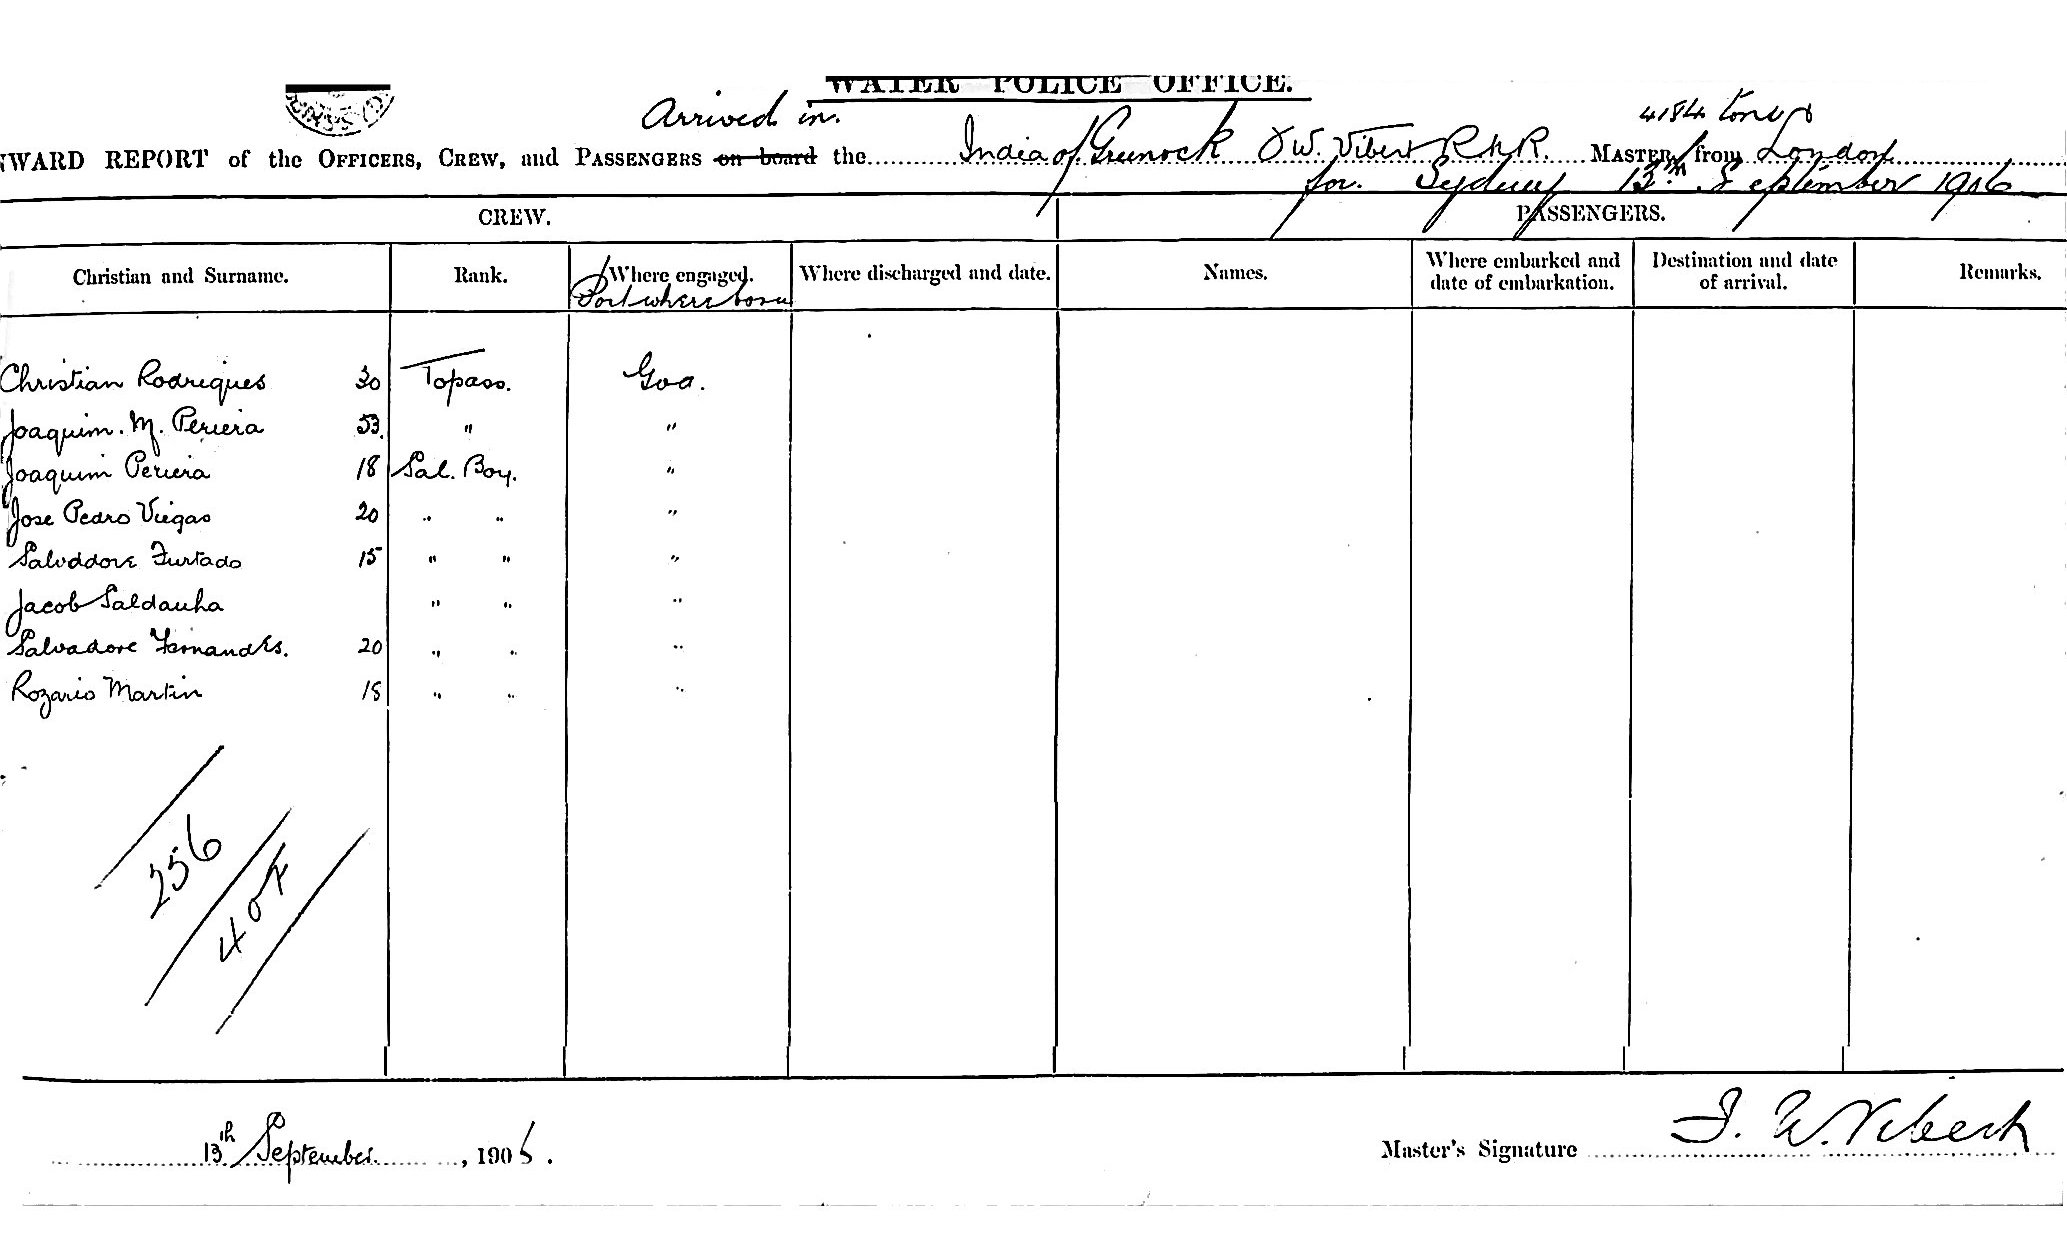 WATER POLICE OFFICE.
Arrived in. 4184 tons
NWARD REPORT of the OFFICERS, CREW, and PASSENGERS on board the India of Greenock W. Vibert R.N.R. MASTER, from London
for Sydney 13th September 1906
CREW. PASSENGERS.
Christian and Surname. Rank. Where engaged. Where discharged and date. Names. Where embarked and date of embarkation. Destination and date of arrival. Remarks.
Port where born
Christian Rodriques 30 Topass. Goa.
Joaquim. M. Periera 53 " "
Joaquim Periera 18 Sal. Boy. "
Jose Pedro Viegas 20 " " "
Salvddore Furtado 15 " " "
Jacob Saldanha " " "
Salvadore Fernandes. 20 " " "
Rozario Martin 18 " " "
256
407
13th September, 1906.
Master's Signature W. Vibert